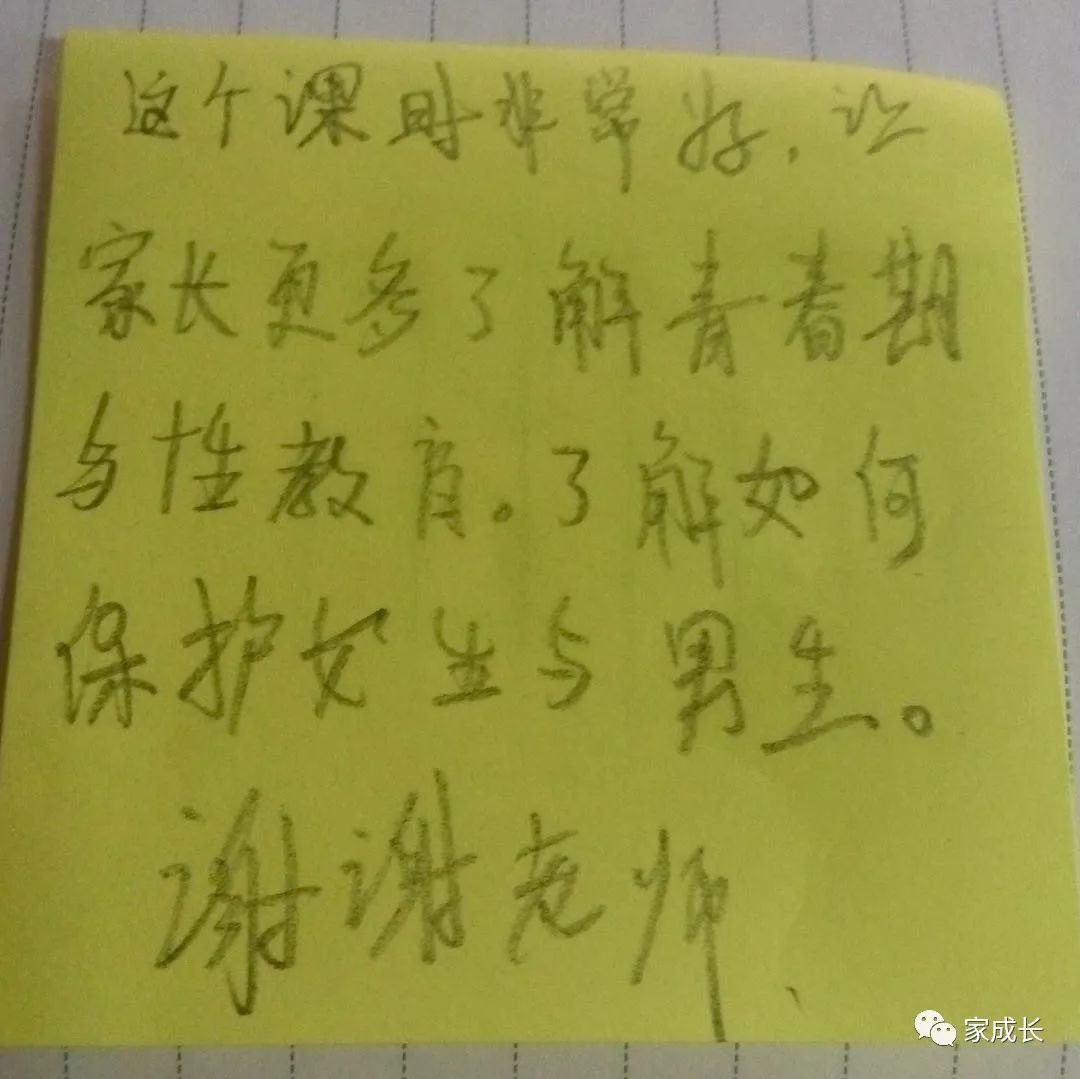 这个课时非常好，让
家长更多了解青春期
与性教育。了解如何
保护女生与男生。
谢谢老师、
家成长